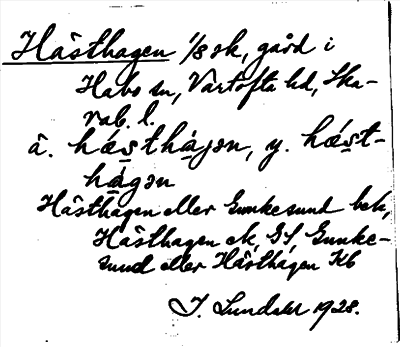 Hästhagen 1/8 sk, gård i
Habo sn, Vartofta hd, Ska-
rab. l.
ä. hæsthagən, y. hæst-
hagən
Hästhagen eller Gunkesund bek,
Hästhagen ek, GS, Gunke-
sund eller Hästhagen Kb
J. Lundahl 1928.